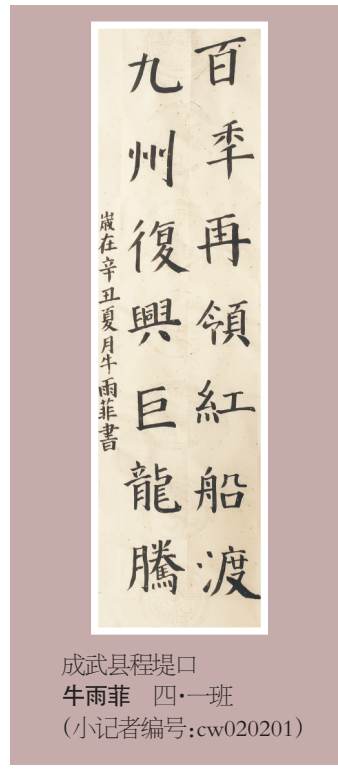 百秊再領紅船渡
九州復興巨龍騰
嵗在辛丑夏月牛雨菲書
成武县程堤口
牛雨菲 四·一班
(小记者编号:cw020201)